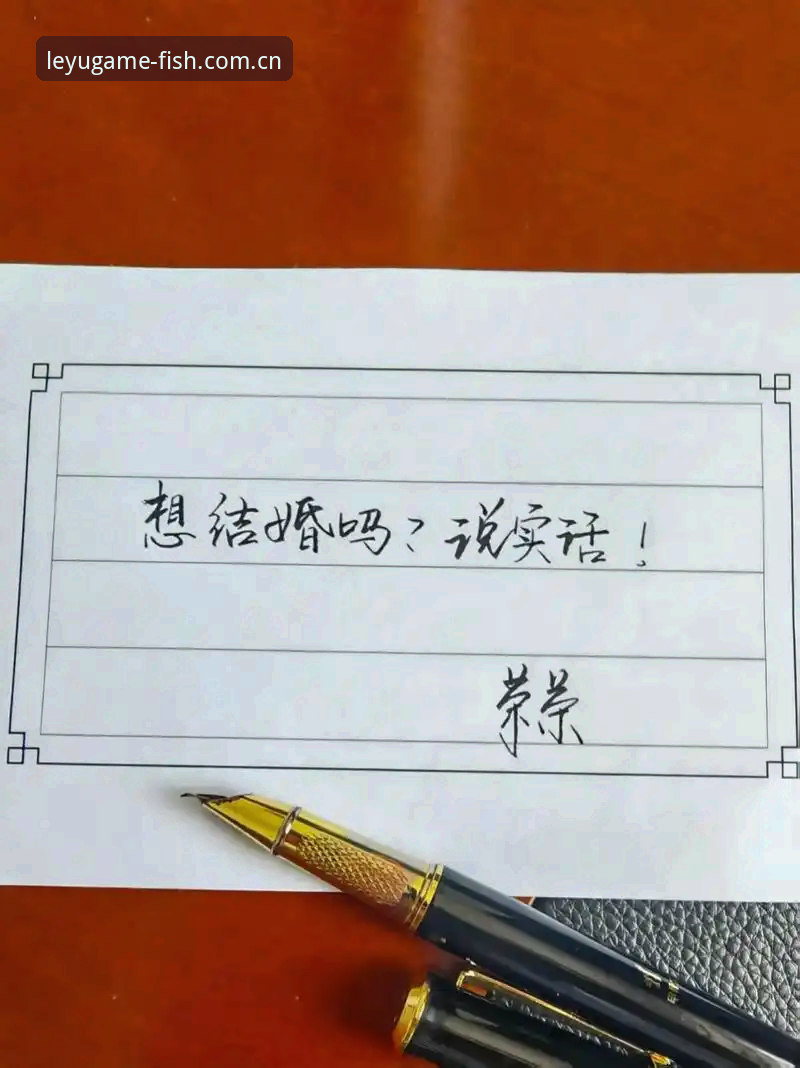 leyugame-fish.com.cn
想结婚吗?说实话!
荣荣